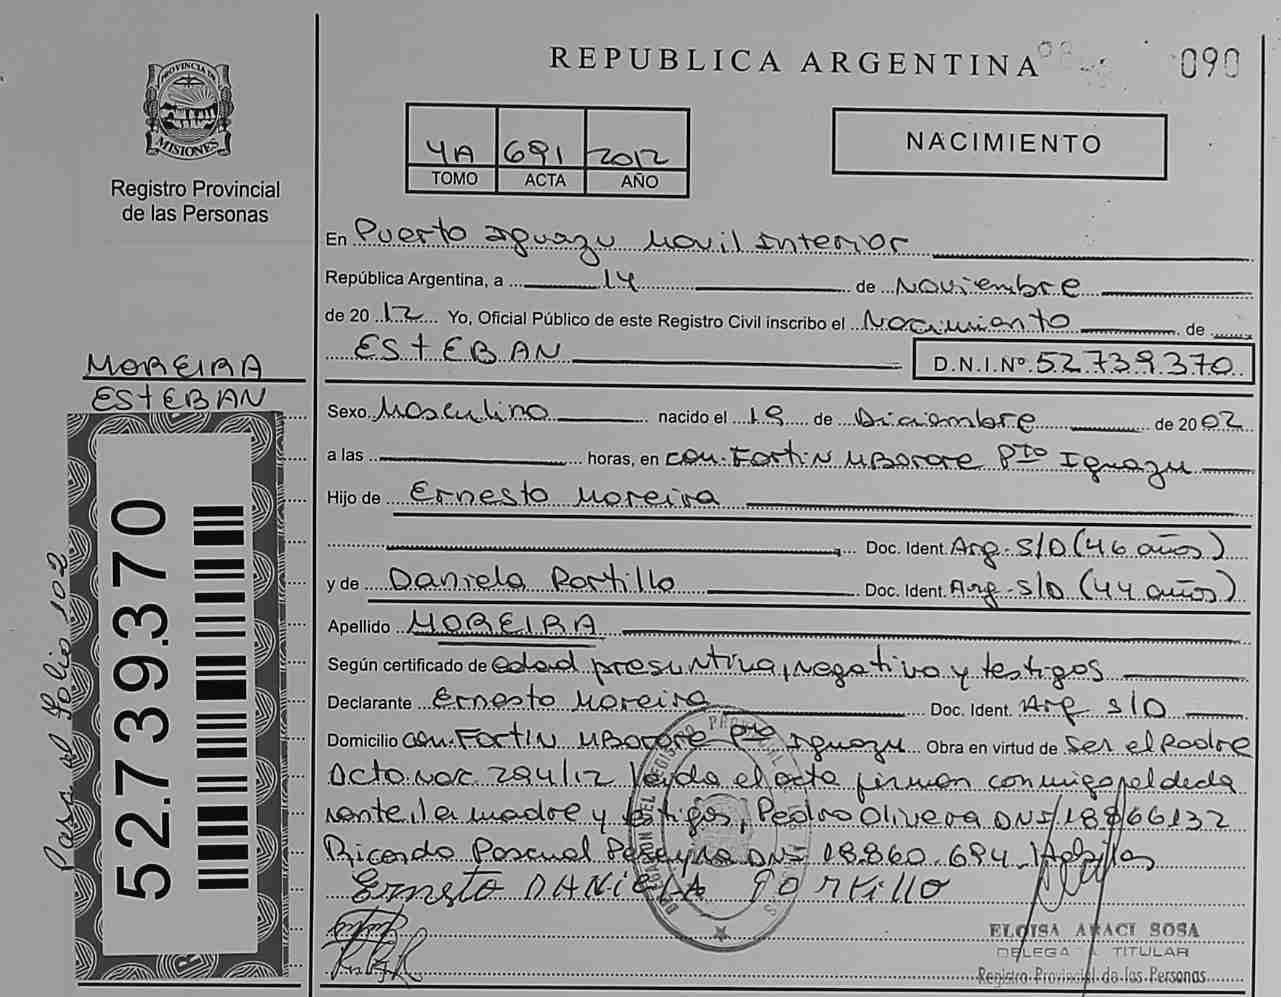 REPUBLICA ARGENTINA
090
PROVINCIA DE
MISIONES
Registro Provincial
de las Personas
4A 691 2012
TOMO ACTA AÑO
NACIMIENTO
En Puerto Iguazu Movil Interior
República Argentina, a 14 de Noviembre
de 2012 Yo, Oficial Público de este Registro Civil inscribo el Nacimiento de
ESTEBAN D.N.I.Nº 52.739.370
MOREIRA
ESTEBAN
Sexo Masculino nacido el 19 de Diciembre de 2002
a las horas, en com. Fortin Mborore Pto Iguazu
Hijo de Ernesto Moreira
Doc. Ident. Arg. S/D (46 años)
y de Daniela Portillo Doc. Ident. Arg. S/D (44 años)
Apellido MOREIRA
Según certificado de edad presuntiva, negativa y testigos
Declarante Ernesto Moreira Doc. Ident. Arg S/D
Domicilio com. Fortin Mborore Pto Iguazu Obra en virtud de Ser el Padre
Dcto. nac 294/12 Leyda el acta firman conmigo el decla
rante, la madre y testigos, Pedro Olivera DNI 18866132
Ricardo Pascual DNI 18.860.694 Habiles
Ernesto DANIELA PORTILLO
ELOISA ARACI SOSA
DELEGADA TITULAR
Registro Provincial de las Personas
52.739.370
Pasa al folio 102